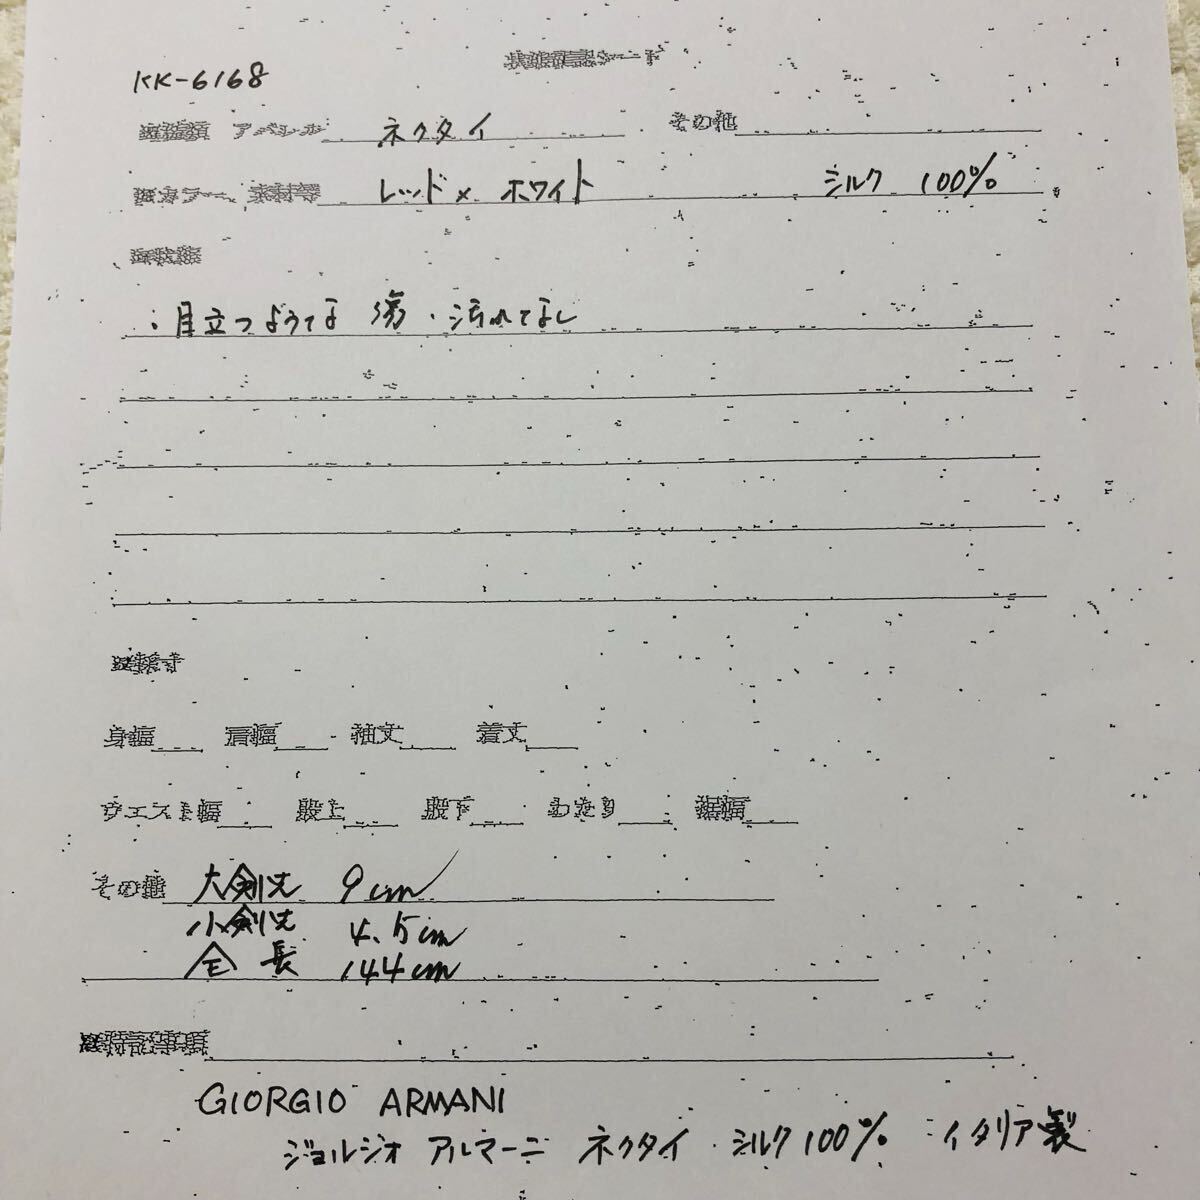 KK-6168
アパレル ネクタイ その他
カラー、素材等 レッド×ホワイト シルク 100%
・目立つような 傷・汚れてなし
身幅 肩幅 袖丈 着丈
ウエスト幅 股上 股下 わたり 裾幅
その他 大剣先 9cm
小剣先 4.5cm
全長 144cm
特記事項
GIORGIO ARMANI
ジョルジオ アルマーニ ネクタイ・シルク100% イタリア製